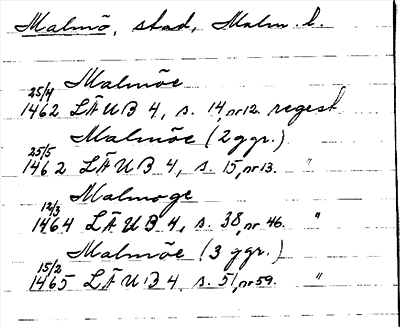 Malmö, stad, Malm. l.
Malmöe
25/4
1462 LÄUB 4, s. 14, nr 12. regest
Malmöe (2 ggr.)
25/5
1462 LÄUB 4, s. 15, nr 13. "
Malmoge
12/3
1464 LÄUB 4, s. 38, nr 46. "
Malmöe (3 ggr.)
15/2
1465 LÄUB 4 s. 51, nr 59. "